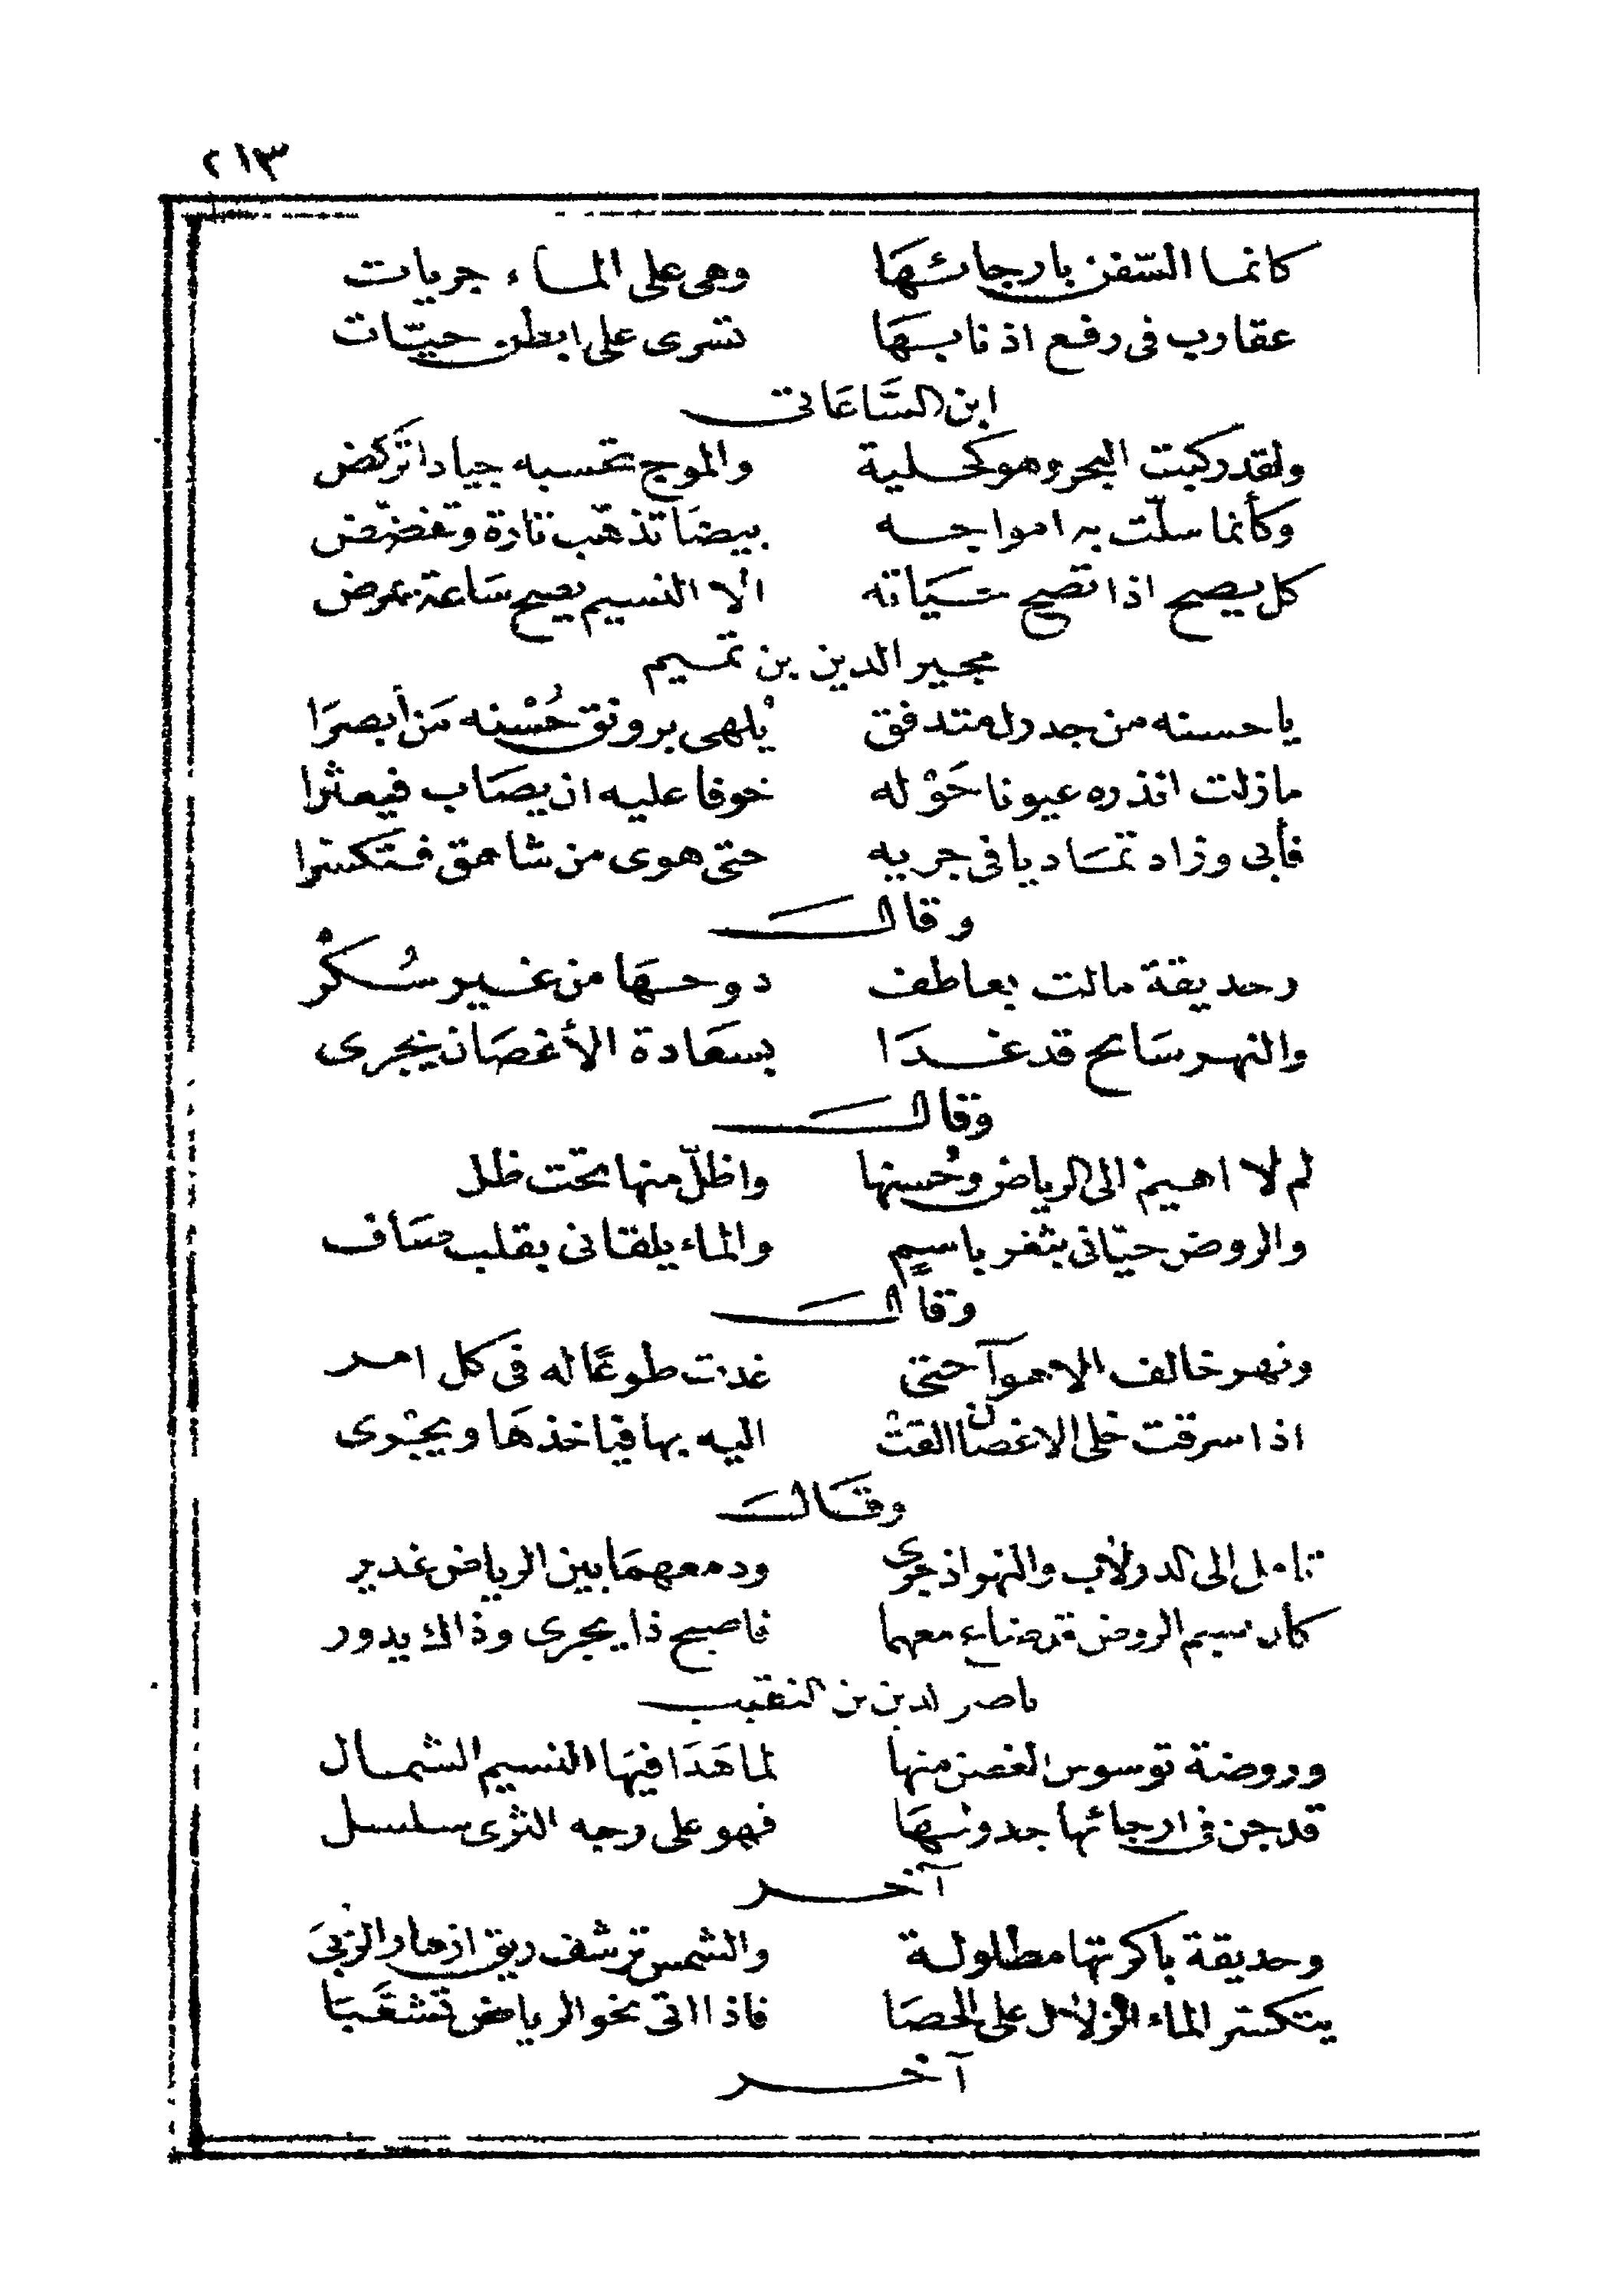 ٢١٣
كانما السّفن بارجائهَا وهى على الماء جريات
عقارب فى رفع اذنابهَا تسرى على ابطن حيّات
ابن السَّاعَاتى
ولقد ركبت البحر وهو كحلية والموج تحسبه جيادا تركض
وكأنما سلّت به امواجه بيضَا تذهّب تارة وتفضّض
كل يصح اذا تصح حَيَاته الا النسيم يصح سَاعة يمرض
مجير الدين بن تميم
يا حسنه من جدول متدفق يُلهى برونق حُسْنه مَن أبصرَا
ما زلت انذره عيونا حَوْله خوفا عليه ان يصَاب فيعثرا
فأبى وزاد تمَاديا فى جريه حتى هوى من شاهق فتكسّرا
وقالَ
وحديقة مالت بعاطف دوحهَا من غير سُكْرْ
والنهر سَابح قد غدَا بسعَادة الأغصَان يجرى
وقالَ
لم لا اهيم الى الرياض وحُسنها واظلّ منها تحت ظل
والروض حيّانى بثغر باسمٍ والماء يلقانى بقلب صَاف
وقالَ
ونهر خالف الاهوآ حتى غدت طوعًا له فى كل امر
اذا سرقت حلى الاغصان القتْ اليه بها فياخذهَا ويجْرى
وقالَ
تامل الى الدولاب والنهر اذ جرى ودمعهمَا بين الرياض غدير
كأن نسيم الروض قد ضاع معهما فاصبح ذا يجرى وذاك يدور
ناصر الدين بن النقيب
وروضة توسوس الغصن منها لما هَدَا فيهَا النسيم الشمال
قد جن فى ارجائها جدولهَا فهو على وجه الثرى سلسل
آخر
وحديقة باكرتها مطلولة والشمس ترشف ريق ازهار الربىَ
يتكسّر الماء الزلال على الحصَا فاذا اتى نحو الرياض تشعَّبَا
آخر